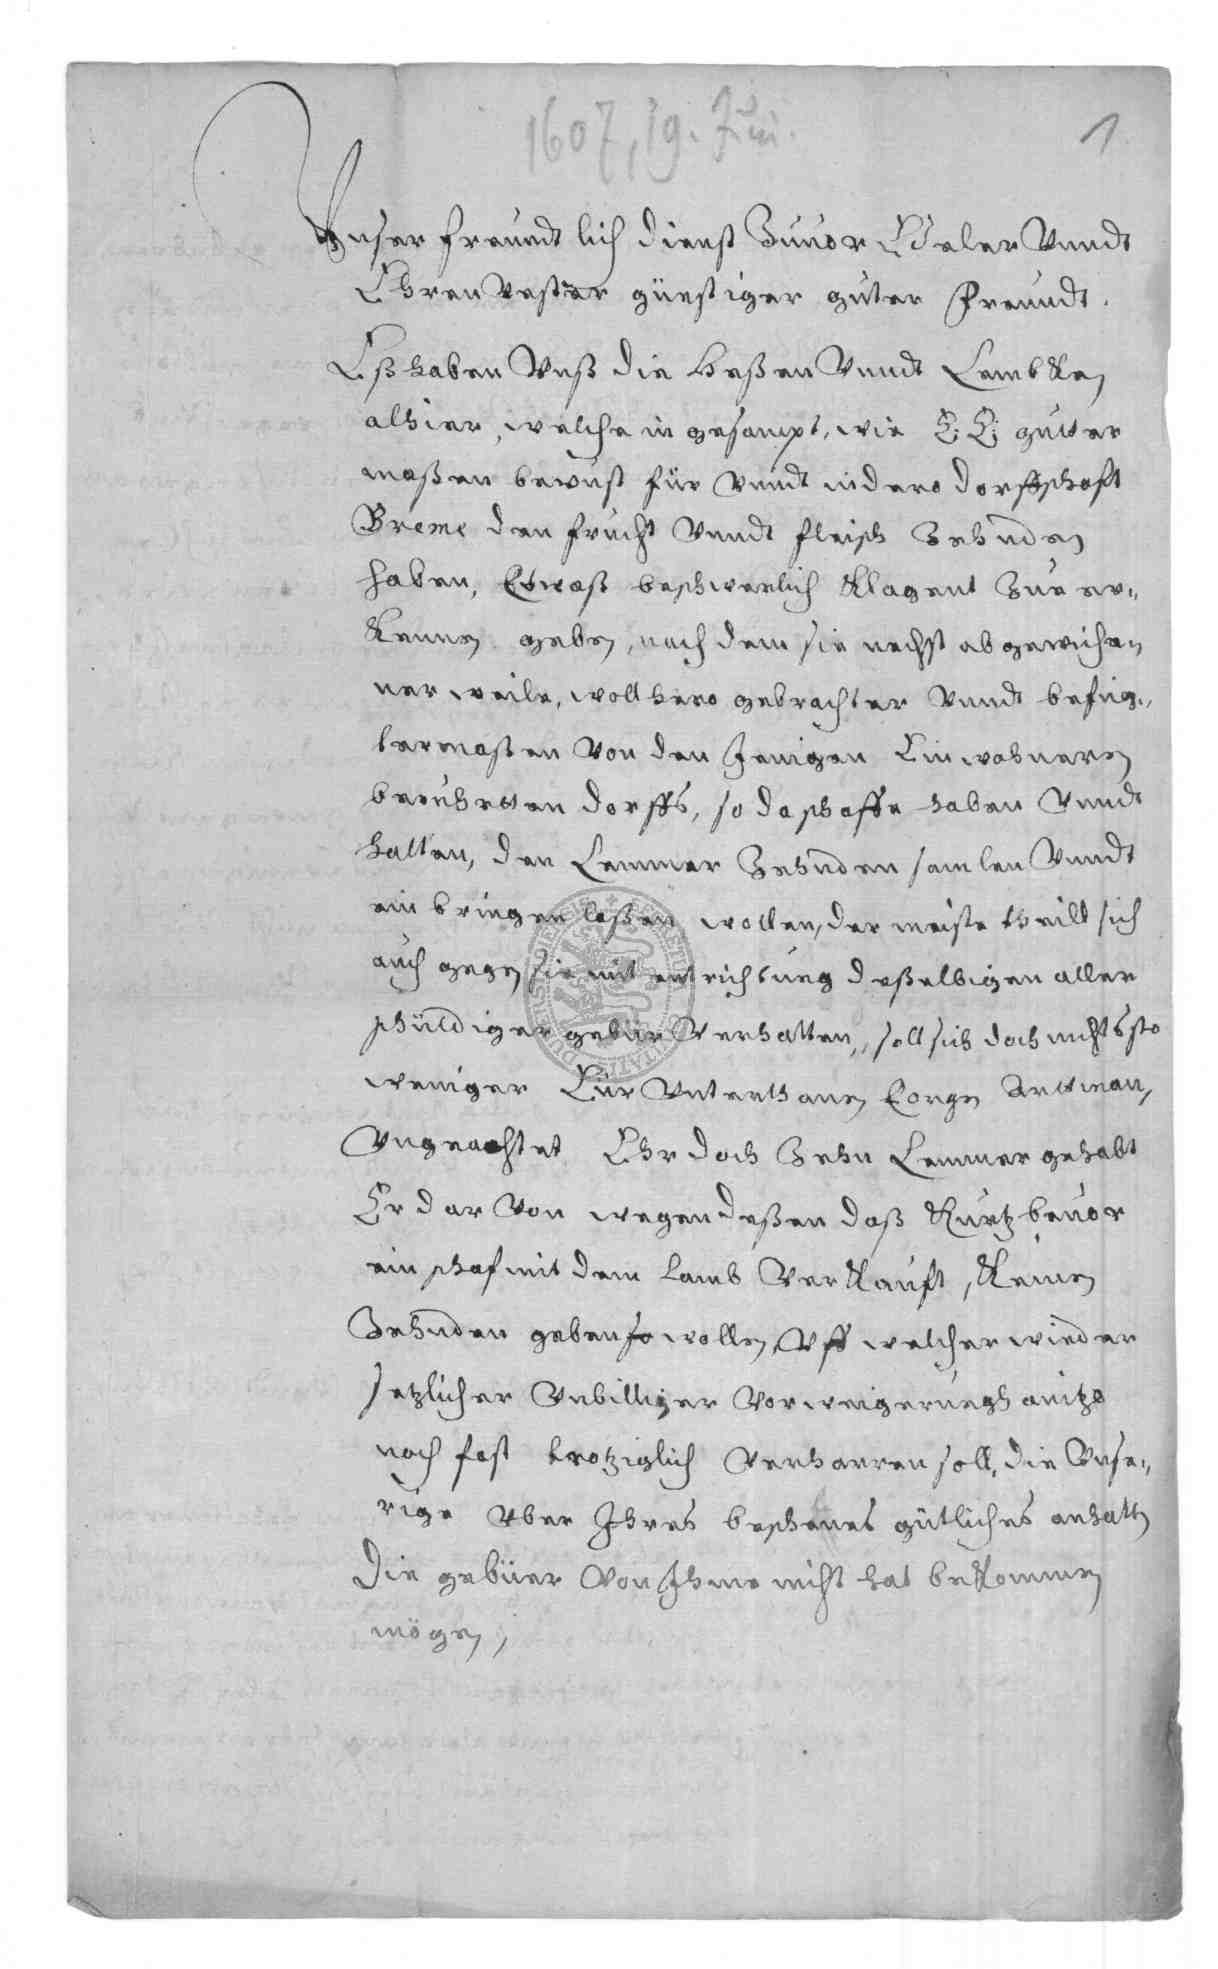 1607, 19. Jun.
1
Unser freundtlich dienst Zuuor Edeler Vnndt
Ehrenvester günstiger guter Freundt.
Eß haben Vnß die Heßen Vnndt Lembken
alhier, welche in gesampt, wie E. E. gutter
maßen bewust für vnndt in dero dorffschafft
Breme den frucht Vnndt fleisch Zehnden
haben, Etwaß beschwerlich klagent Zue er-
kennen geben, nach dem sie nechst abgewichen
ner weile, woll hero gebrachter Vnndt befug-
termaßen Von den Jenigen Einwohneren
berührtten dorffs, so da schaffe haben Vnndt
halten, den Lemmer Zehnden samlen Vnndt
einbringen laßen wollen, der meiste theill sich
auch gegen sie mit entrichtung deßelbigen aller
schüldiger gebür Verhalten, soll sich doch nichts sto
weniger Eür Vnterthanen Corgen
Vngeachtet Ehr doch Zehn Lemmer gehabt
Er dar Von wegen deßen daß kurtz beuor
ein schaf mit dem lamb Verkauft, keinen
Zehnden geben wollen, Vff welcher wieder
setzlicher Vnbilliger Vorweigerungh anitzo
noch fast trotziglich Verharren soll, die Vnse-
rige vber Ihres beschenes gütliches anhalten
die gebüer Von Ihme nicht hat bekommen
mögen,